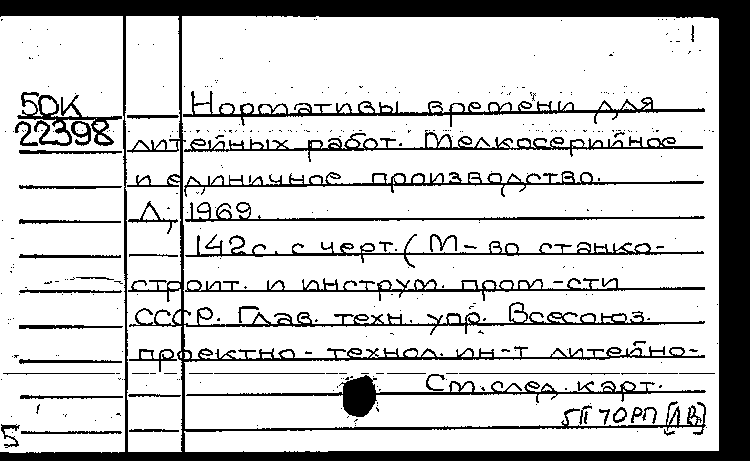 1
50К
22398
Нормативы времени для
литейных работ. Мелкосерийное
и единичное производство.
Л., 1969.
142 с. с черт. (М-во станко-
строит. и инструм. пром-сти
СССР. Глав. техн. упр. Всесоюз.
проектно-технол. ин-т литейно-
См. след. карт.
5П 70РП [1В]